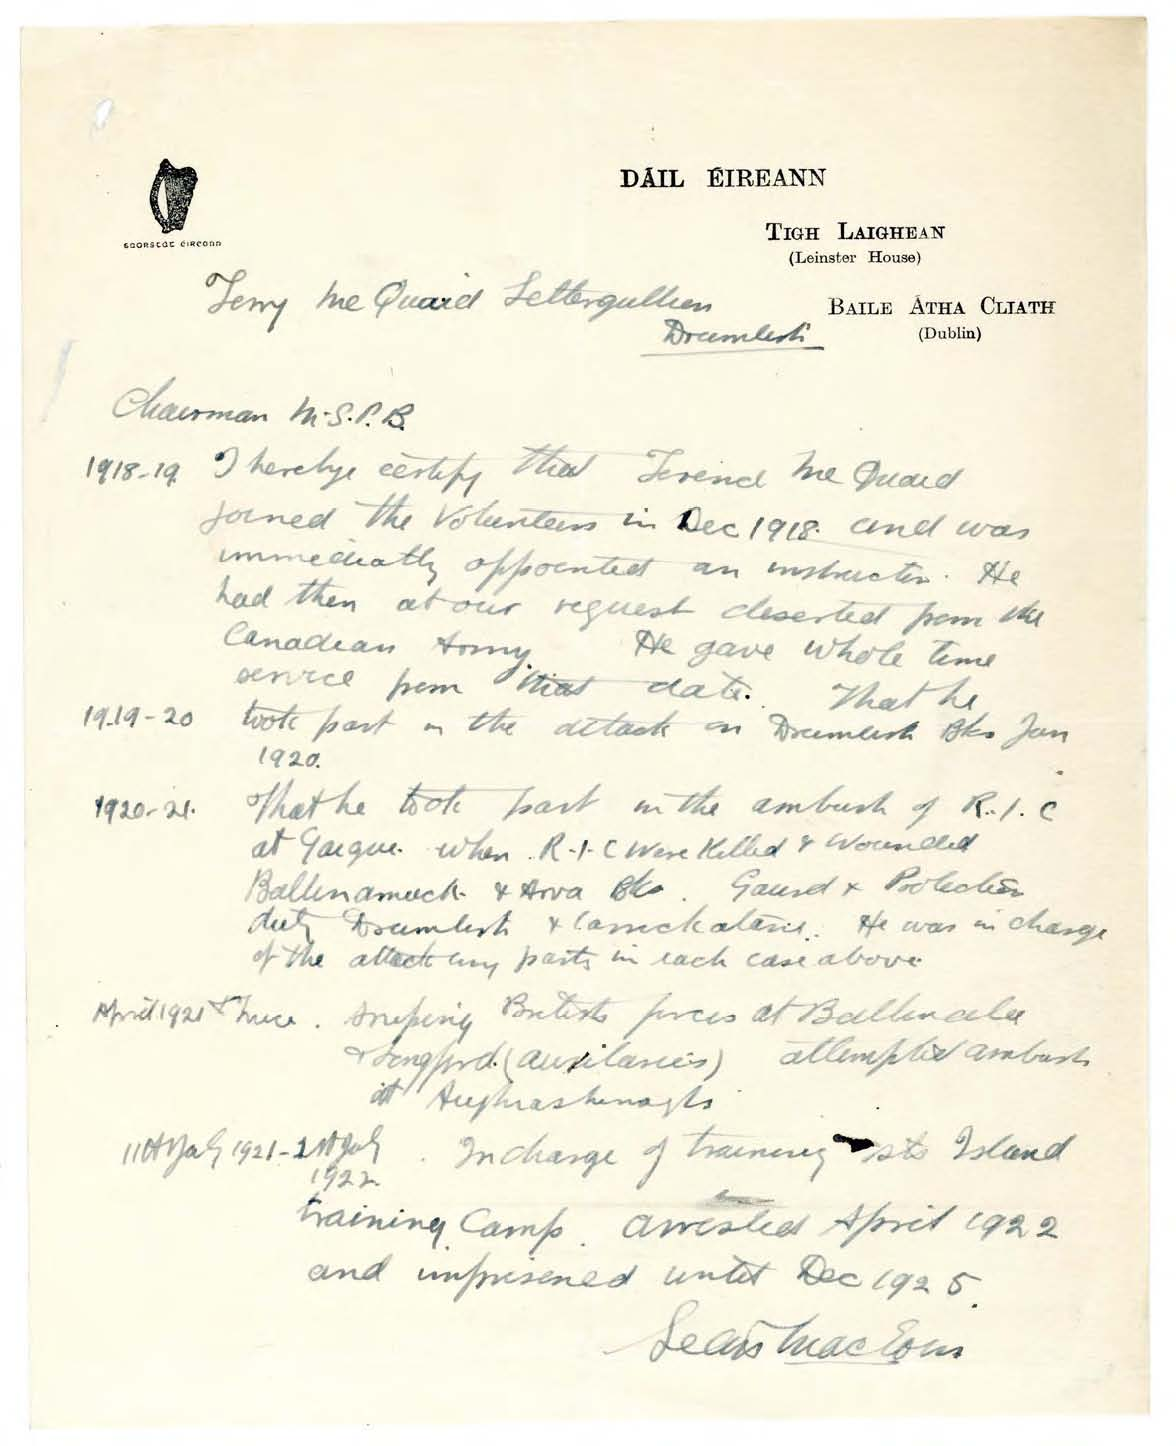 DÁIL ÉIREANN
SAORSTÁT ÉIREANN
TIGH LAIGHEAN
(Leinster House)
BAILE ÁTHA CLIATH
(Dublin)
Terry Mc Quaid Lettergullion
Drumlish
Chairman M.S.P.B.
1918-19. I hereby certify that Terence Mc Quaid
joined the Volunteers in Dec 1918. and was
immediatly appointed an instructor. He
had then at our request deserted from the
Canadian Army. He gave whole time
service from that date. That he
1919-20 took part in the attack on Drumlish Bks Jan
1920.
1920-21. That he took part in the ambush of R.I.C
at when R.I.C were Killed & Wounded
Ballinamuck & Arva Bks. Gaurd & Protection
duty Drumlish & He was in charge
of the attacking party in each case above
April 1921 & Truce. Sniping British forces at Ballinalee
& Longford. (Auxilaries) attempted ambush
at
11th July 1921-21st July
1922. . In charge of training Island
training Camp. arrested April 1922
and imprisened until Dec 1925.
Seán MacEoin